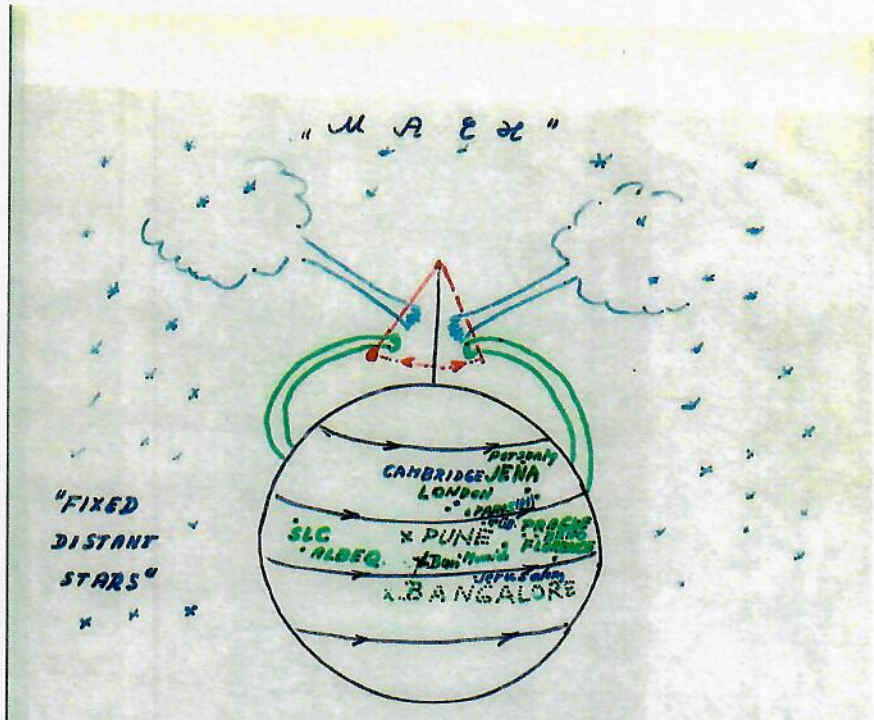 "MACH"
"FIXED
DISTANT
STARS"
POTSDAM
CAMBRIDGE JENA
LONDON
PARIS
SLC
x PUNE
PRAGUE
ALBEQ.
Bari Munich
FLORENCE
Jerusalem
x BANGALORE